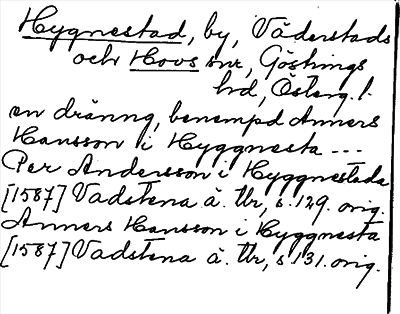 Hygnestad, by, Väderstads
och Hovs snr, Göstrings
hd, Österg. l.
en dränng, benempd Anners
Hansson i Hyggnesta ---
Per Andersson i Hyggnestada
[1587] Vadstena ä. tb, s. 129. orig.
Anners Hansson i Hyggnesta
[1587] Vadstena ä. tb, s 131. orig.